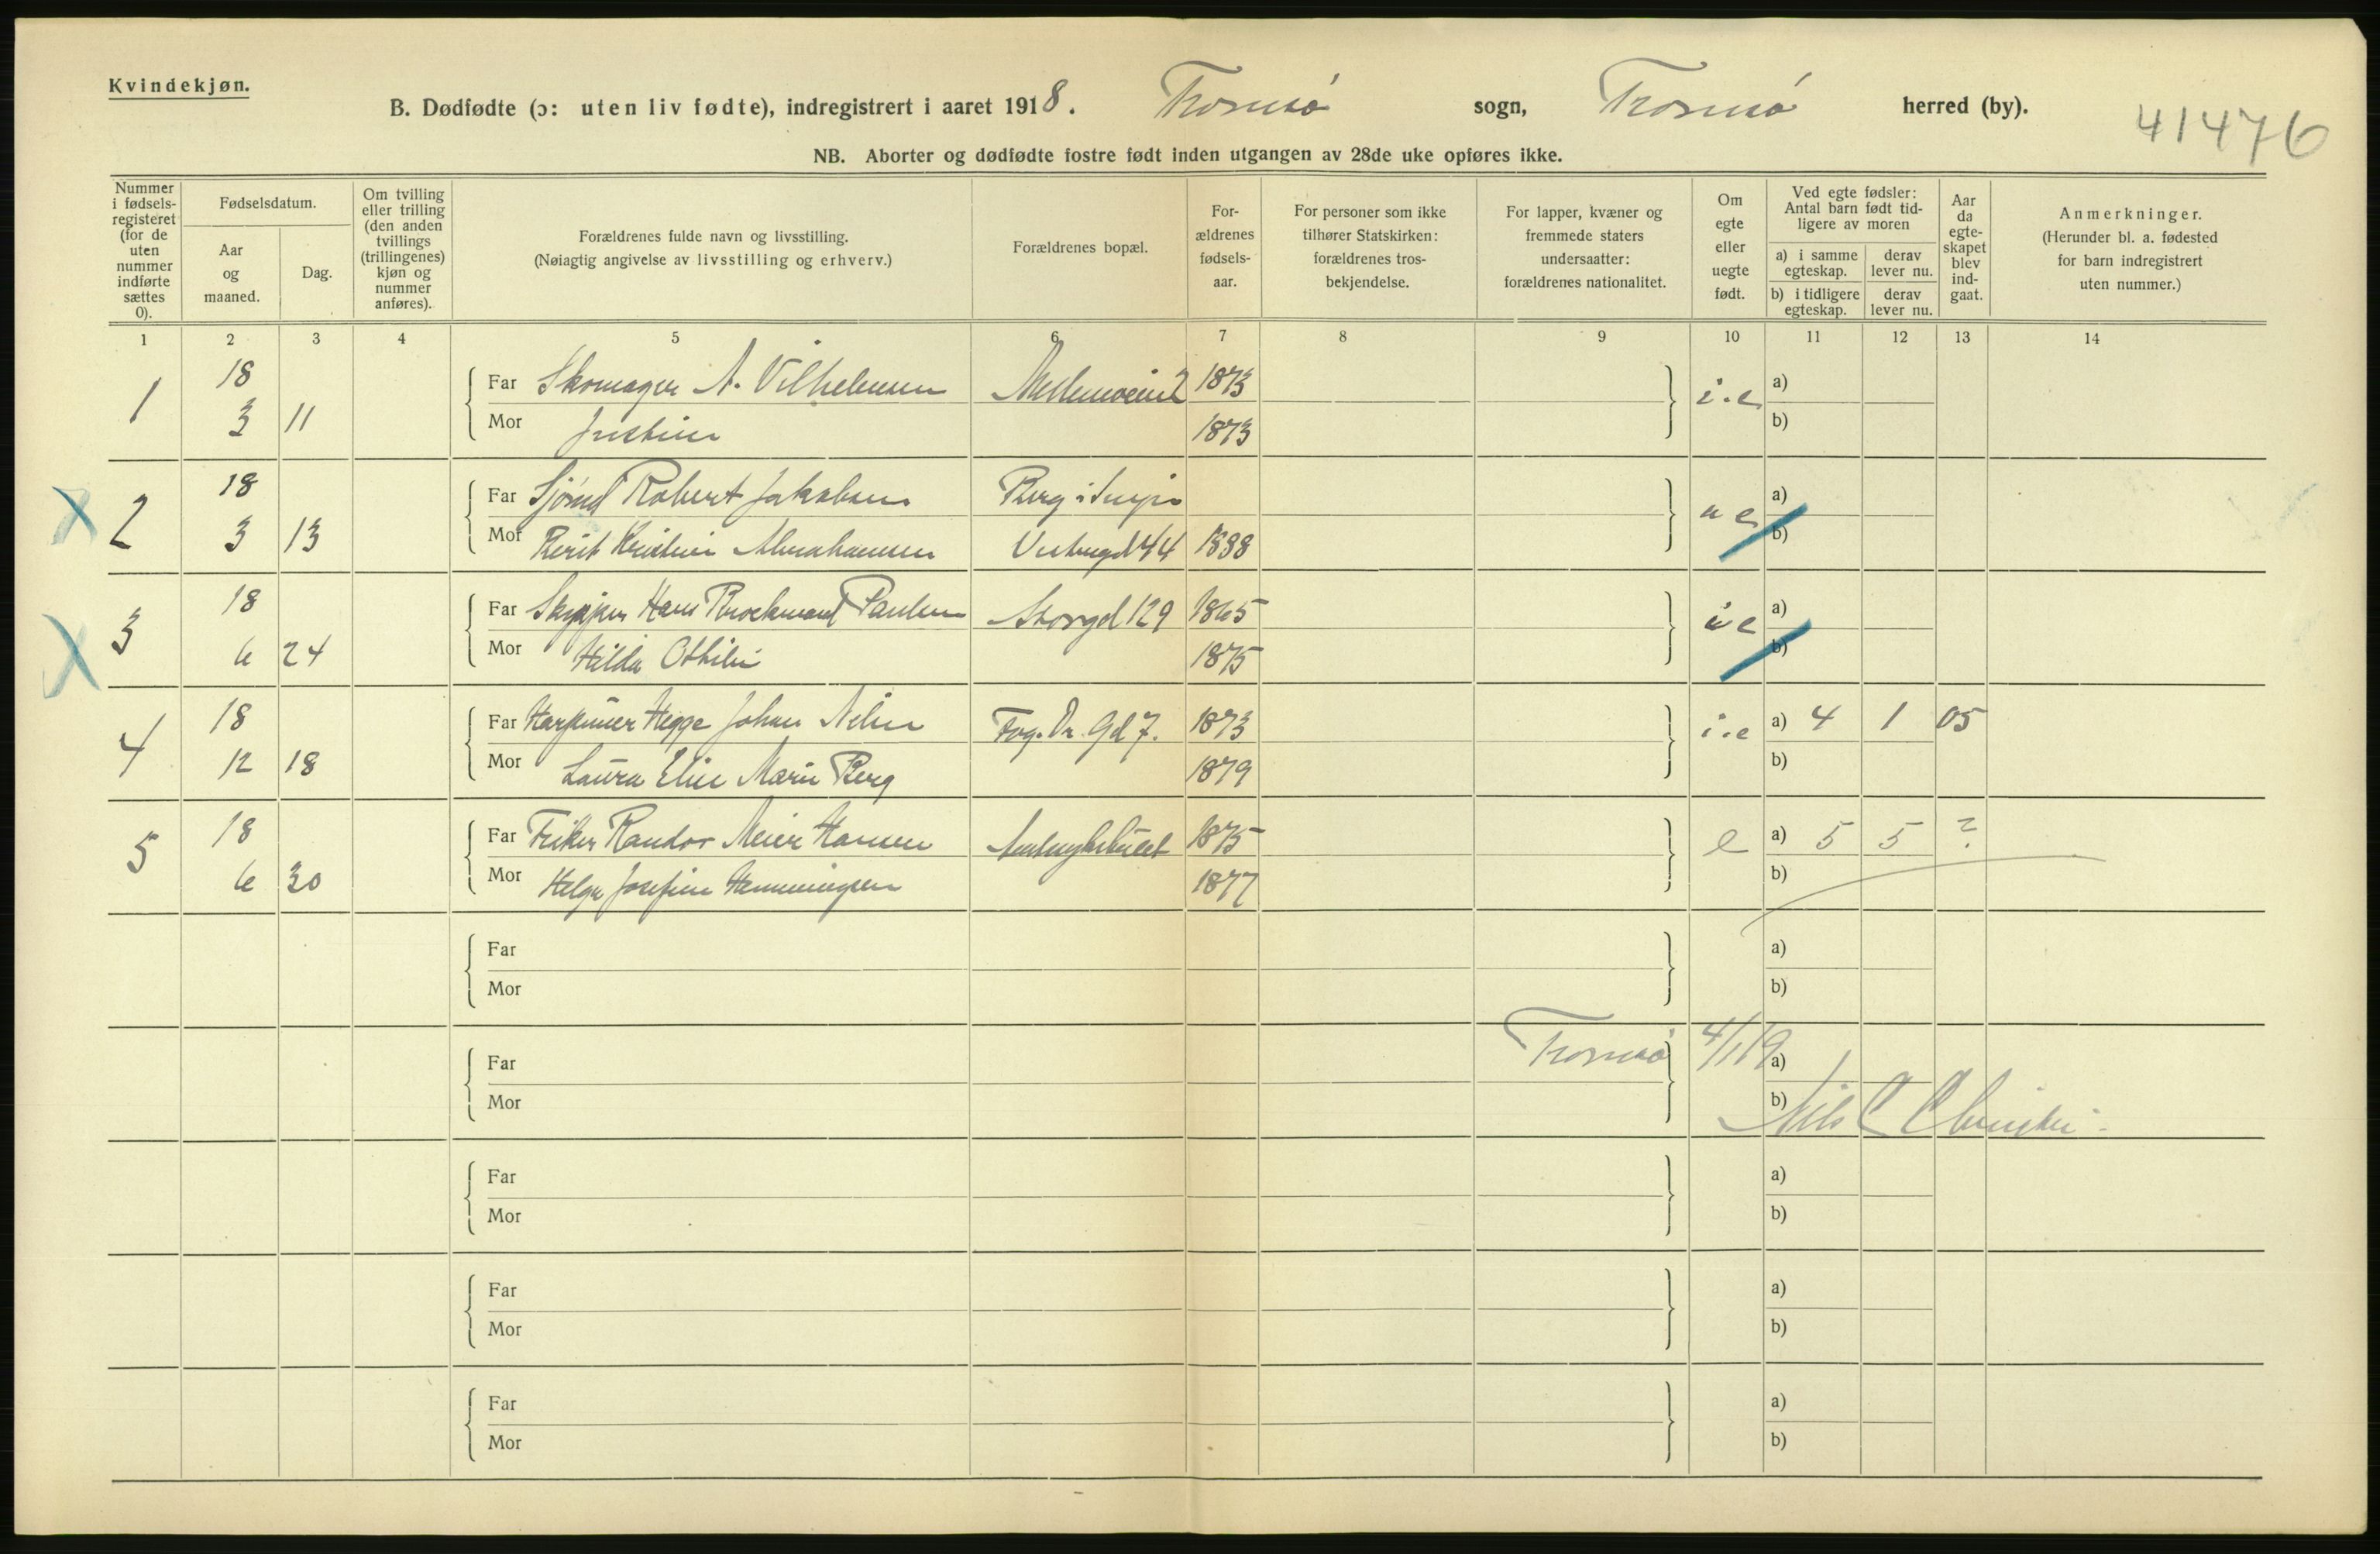 Kvindekjøn.
B. Dødfødte (ɔ: uten liv fødte), indregistrert i aaret 1918. Tromsø sogn, Tromsø herred (by).
41476
NB. Aborter og dødfødte fostre født inden utgangen av 28de uke opføres ikke.
Nummer i fødsels-registeret (for de uten nummer indførte sættes 0).
Fødselsdatum.
Aar og maaned.
Dag.
Om tvilling eller trilling (den anden tvillings (trillingenes) kjøn og nummer anføres).
Forældrenes fulde navn og livsstilling.
(Nøiagtig angivelse av livsstilling og erhverv.)
Forældrenes bopæl.
For-ældrenes fødsels-aar.
For personer som ikke tilhører Statskirken: forældrenes tros-bekjendelse.
For lapper, kvæner og fremmede staters undersaatter: forældrenes nationalitet.
Om egte eller uegte født.
Ved egte fødsler: Antal barn født tid-ligere av moren
a) i samme egteskap.
derav lever nu.
b) i tidligere egteskap.
derav lever nu.
Aar da egte-skapet blev ind-gaat.
Anmerkninger.
(Herunder bl. a. fødested for barn indregistrert uten nummer.)
1 2 3 4 5 6 7 8 9 10 11 12 13 14
1 18 Far Skomager A. Vilhelmsen 1873 i.e a)
3 11 Mor 1873 b)
X 2 18 Far Robert Jakobsen Berg i u e a)
3 13 Mor Berit Kristine Abrahamsen 44 1888 b)
X 3 18 Far Skipper Hans Paulsen Storgd 129 1865 a)
6 24 Mor Hilda Othilie 1875 b)
4 18 Far Hegge Johan Gd 7. 1873 i.e a) 4 1 05
12 18 Mor Laura Elise Marie Berg 1879 b)
5 18 Far Fisker Randor Meier Hansen 1875 e a) 5 5 ?
6 30 Mor Helga Josefine Henningsen 1877 b)
Far a)
Mor b)
Tromsø 4/1 19
Far a)
Mor b)
Nils C
Far a)
Mor b)
Far a)
Mor b)
Far a)
Mor b)